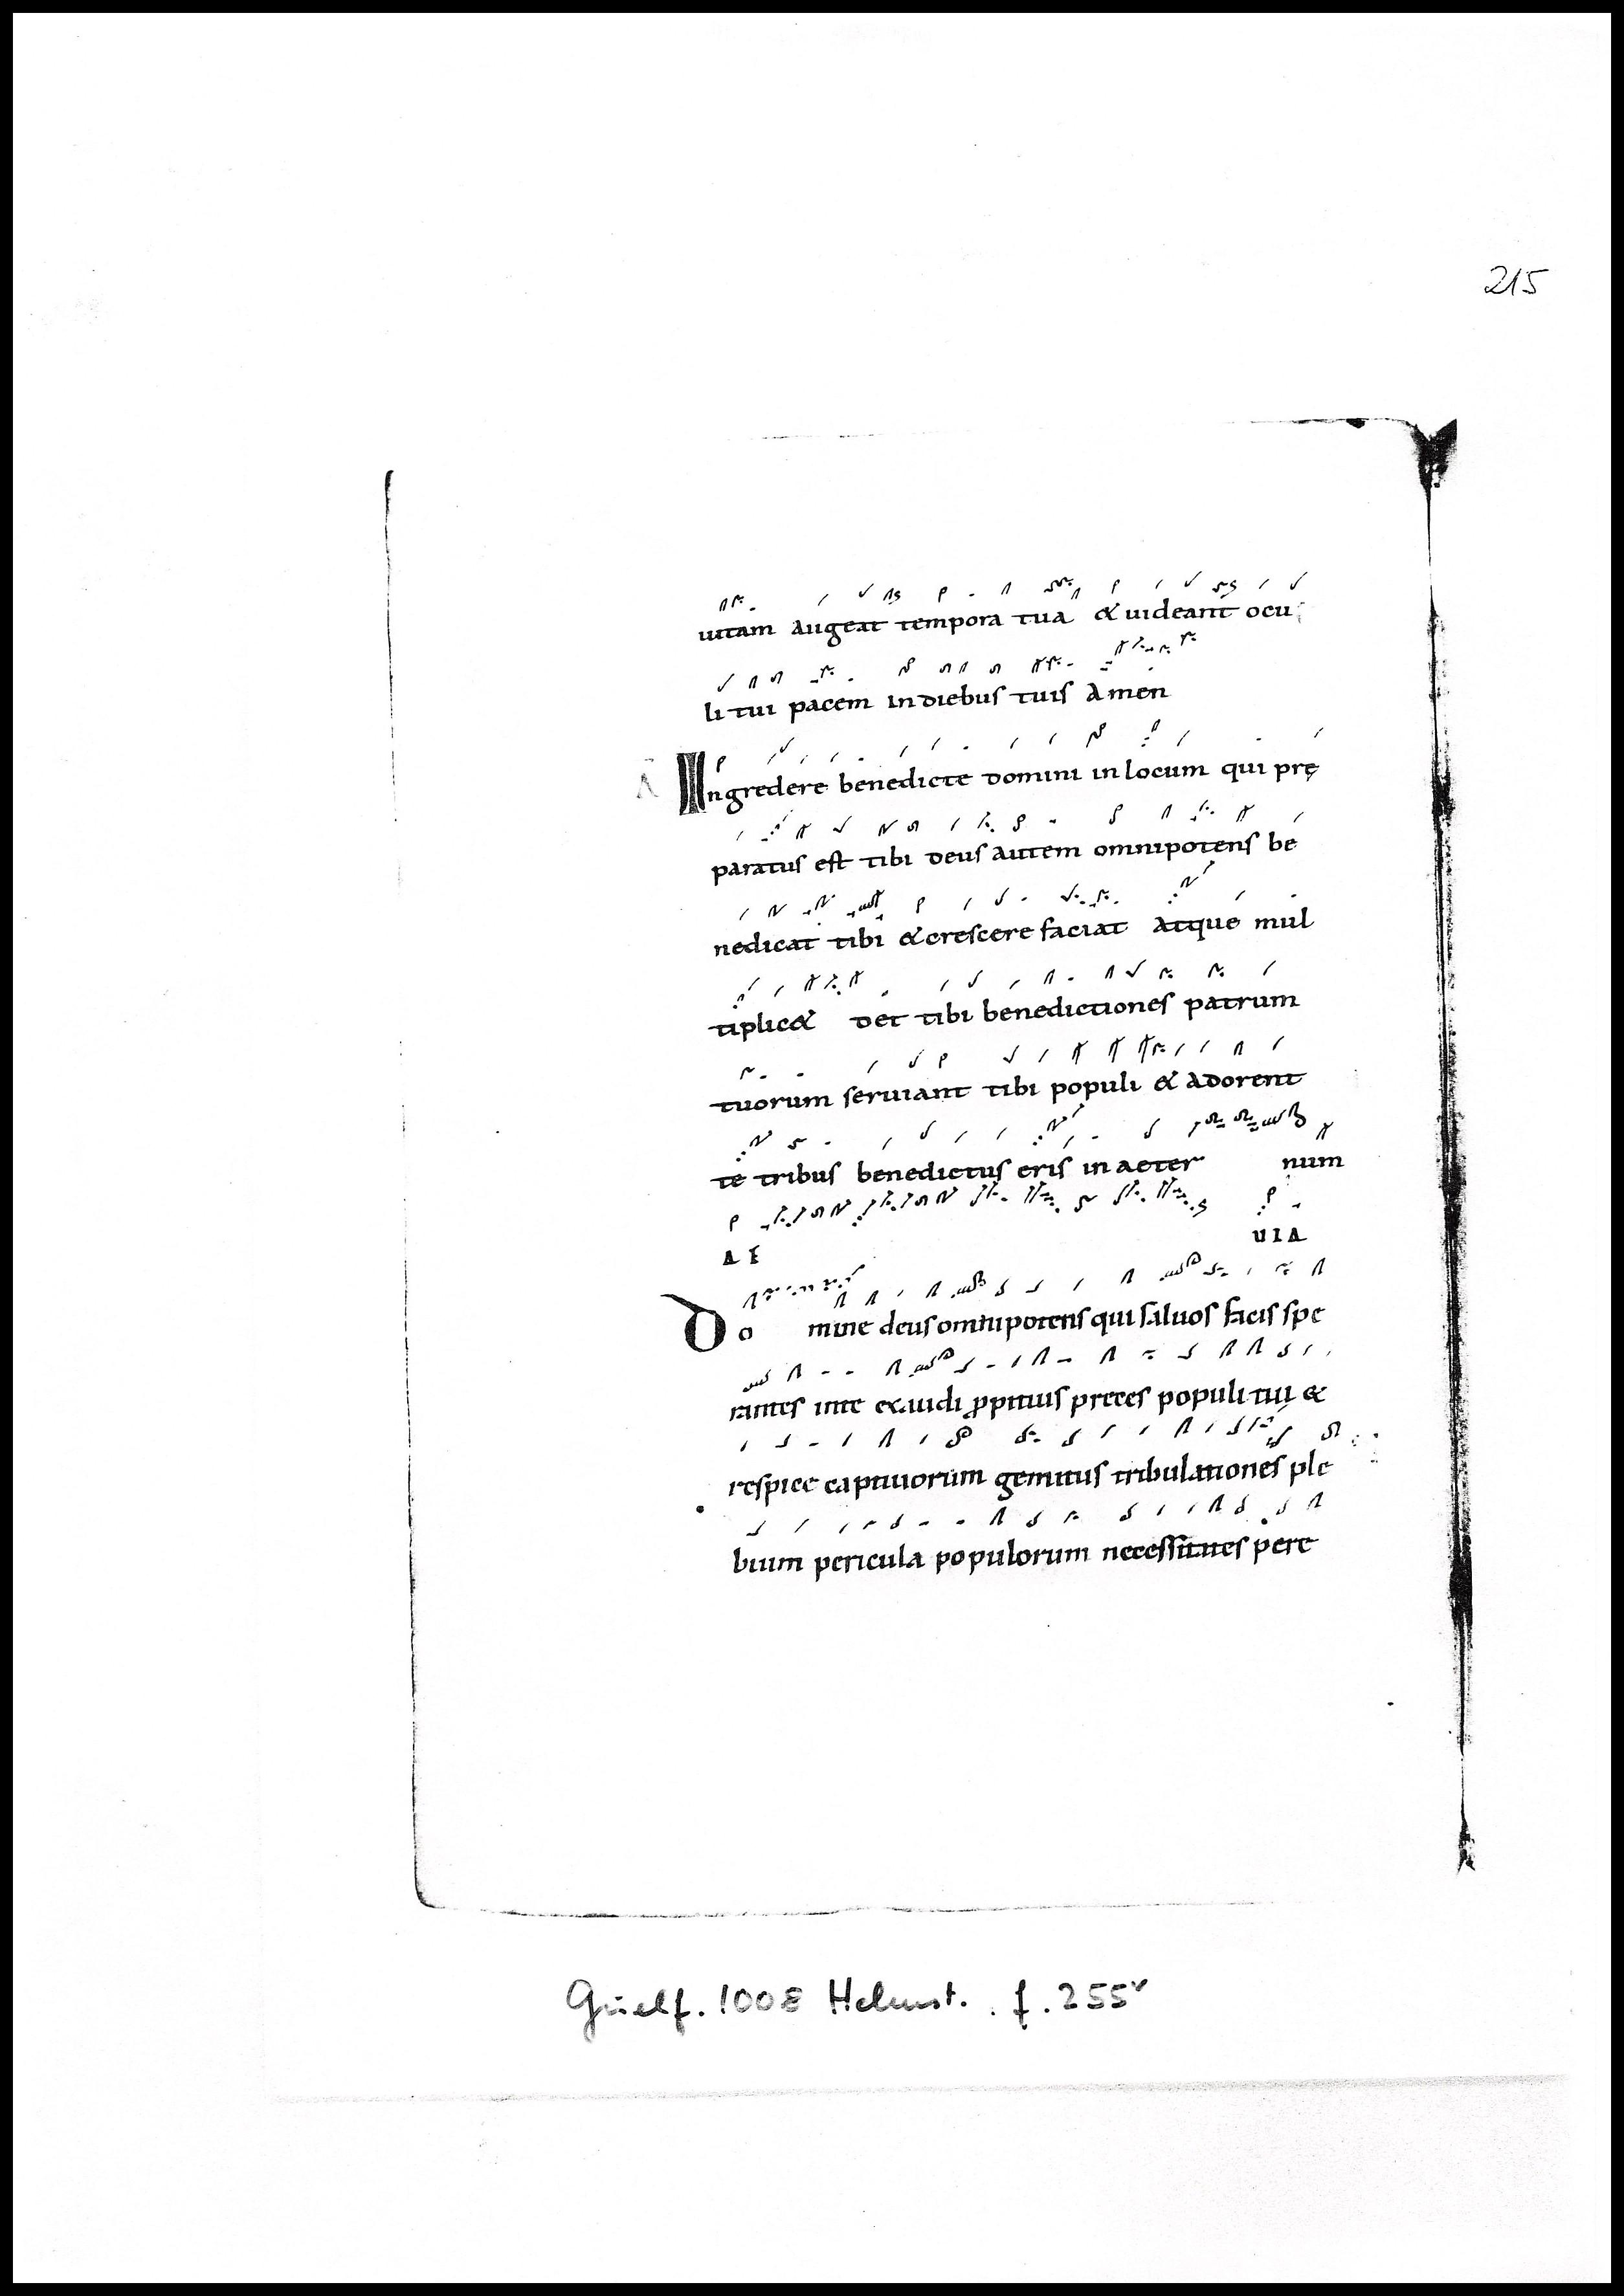 215
uitam augeat tempora tua & uideant ocu
li tui pacem in diebus tuis Amen
A Ingredere benedicte domini in locum qui prę
paratus est tibi deus autem omnipotens be
nedicat tibi & crescere faciat atque mul
tiplic& det tibi benedictiones patrum
tuorum seruiant tibi populi & adorent
te tribus benedictus eris in aeter num
AE UIA
Domine deus omnipotens qui saluos facis spe
rantes in te exaudi ꝓpitius preces populi tui &
respice captiuorum gemitus tribulationes ple
bium pericula populorum necessitates pere
Guelf. 1008 Helmst. f. 255v